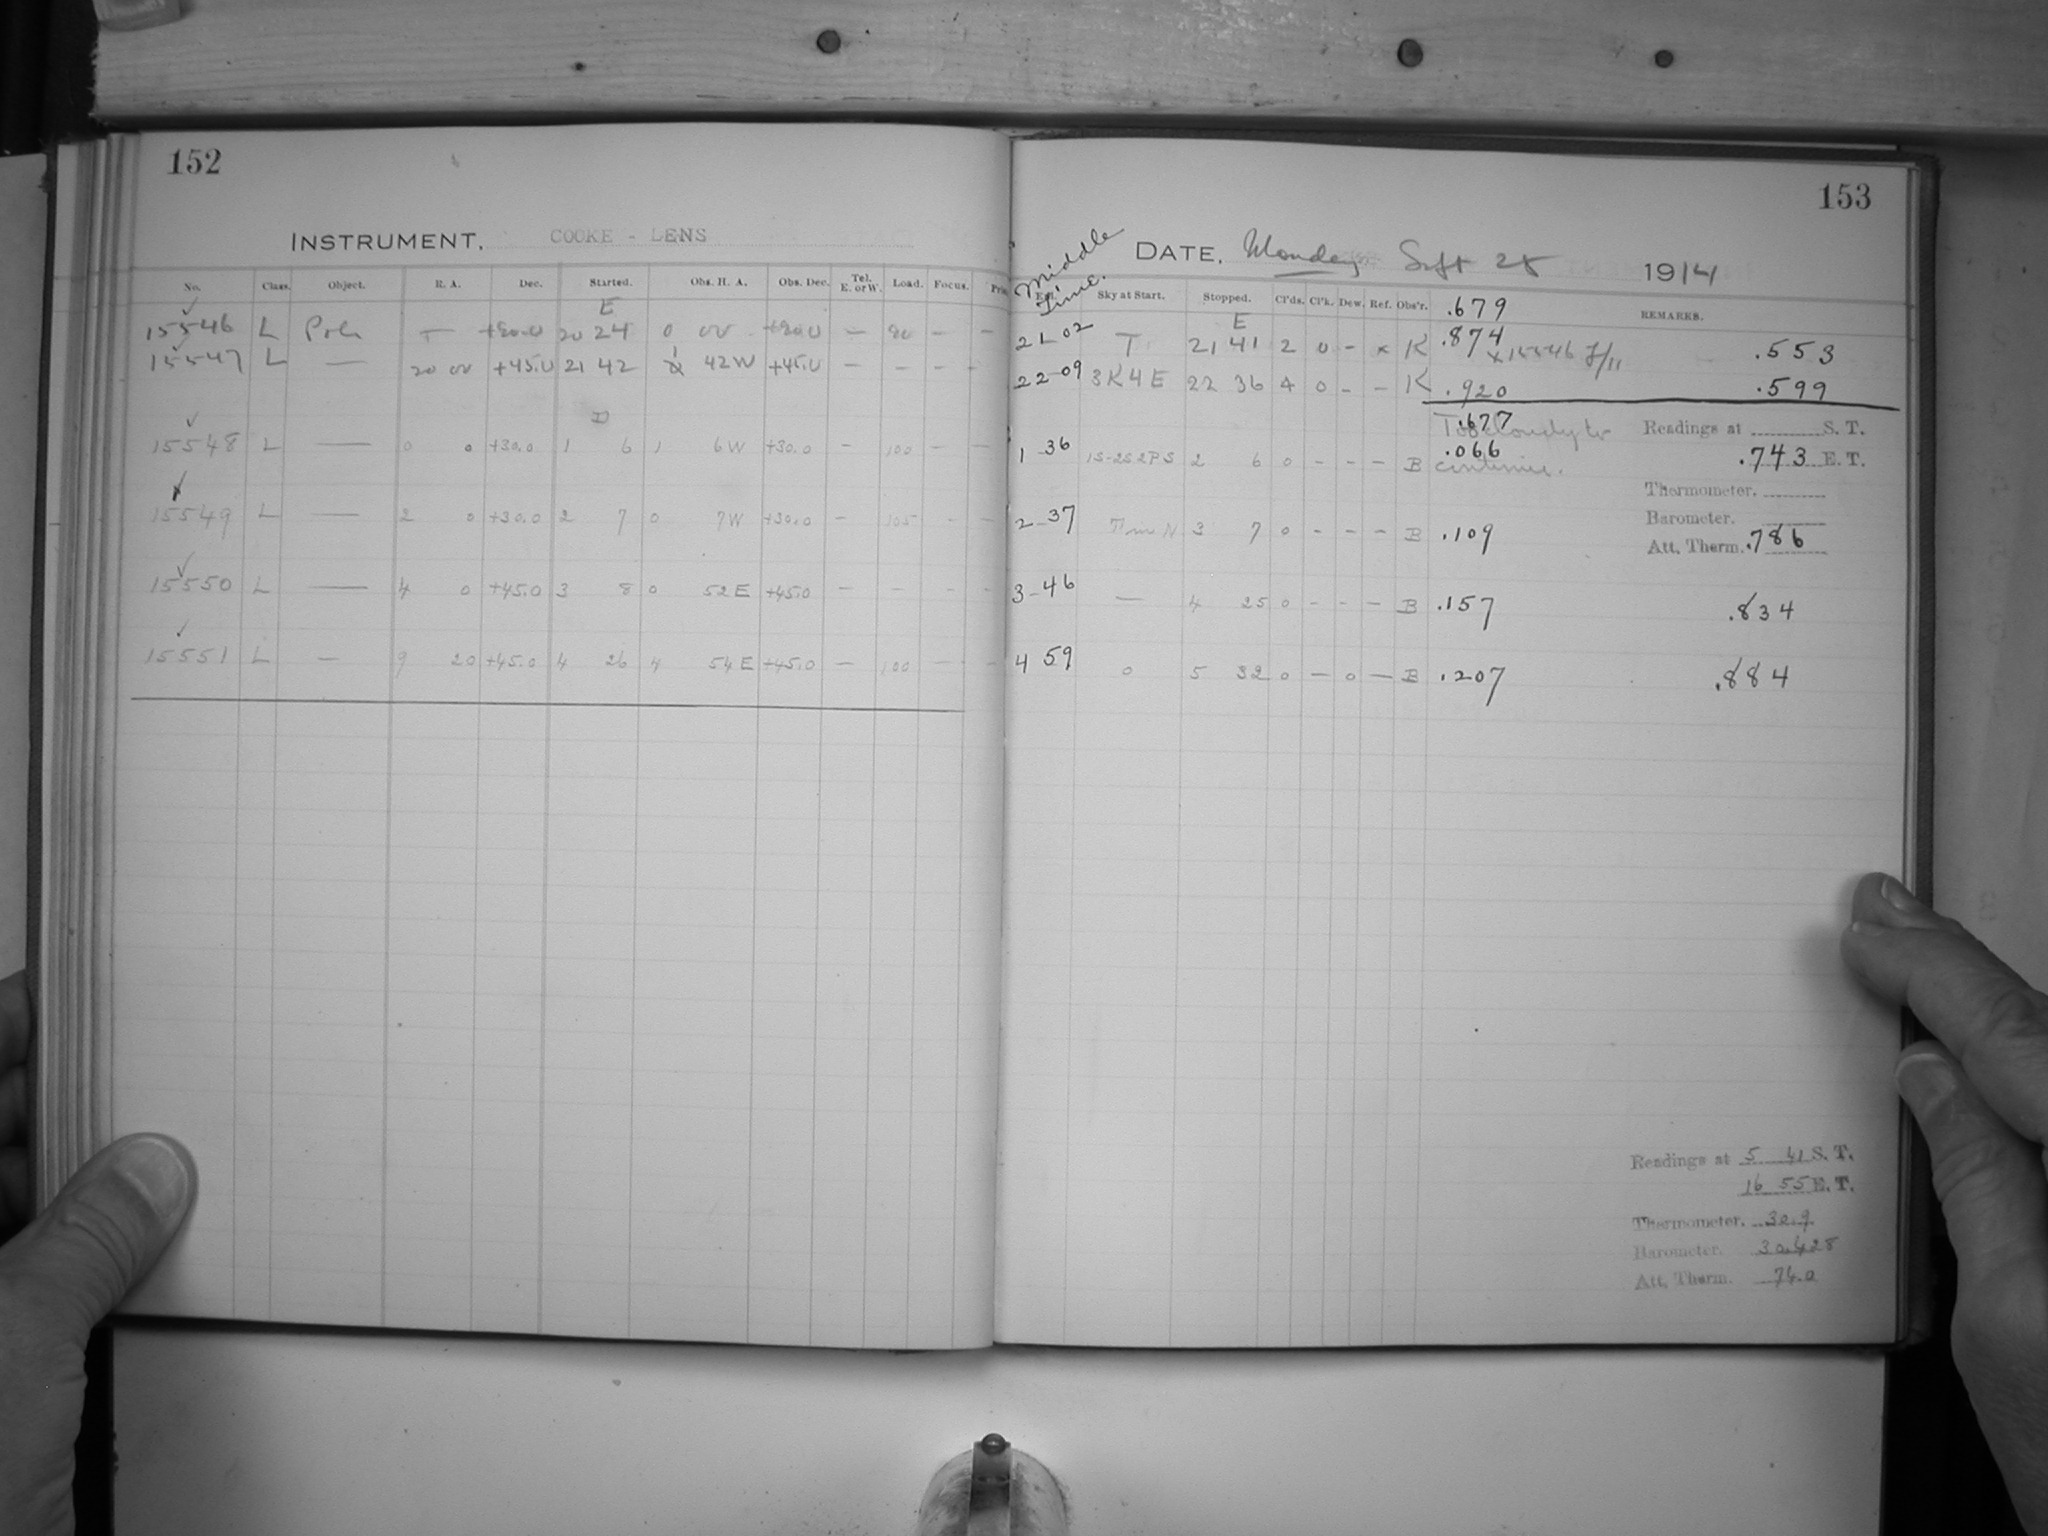 152
INSTRUMENT. COOKE - LENS
No. Class. Object. R. A. Dec. Started. Obs. H. A. Obs. Dec. Tel. E. or W. Load. Focus.
E
15546 L Pole — +90.0 20 24 0 00 +90.0 — 90 — —
15547 L — 20 00 +45.0 21 42 1 42W +45.0 — — — —
D
15548 L — 0 0 +30.0 1 6 1 6W +30.0 — 100 — —
15549 L — 2 0 +30.0 2 7 0 7W +30.0 — 105 — —
15550 L — 4 0 +45.0 3 8 0 52E +45.0 — — — —
15551 L — 9 20 +45.0 4 26 4 54E +45.0 — 100 — —
153
Middle Time.
DATE. Monday Sept 28 1914
Sky at Start. Stopped. Cl'ds. Cl'k. Dew. Ref. Obs'r. .679 REMARKS.
E
21-02 T. 21 41 2 0 - x K .874 x15546 f/11 .553
22-09 3K4E 22 36 4 0 - - K .920 .599
.677
Too cloudy to
continue.
Readings at S. T.
1-36 1S-2S2PS 2 6 0 - - - B .066 .743 E. T.
Thermometer.
Barometer.
2-37 3 7 0 - - - B .109 Att. Therm. .786
3-46 — 4 25 0 - - - B .157 .834
4 59 0 5 32 0 — 0 — B .207 .884
Readings at 5 41 S. T.
16 55 E. T.
Thermometer. 30.9
Barometer. 30.428
Att. Therm. 74.0